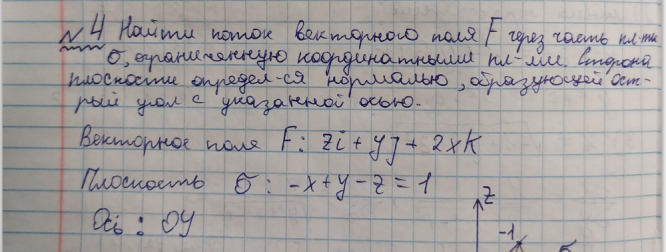 №4 Найти поток векторного поля F через часть пл-ти
σ, ограниченную координатными пл-ми. Сторона
плоскости определ-ся нормалью, образующей ост-
рый угол с указанной осью.
Векторное поля F: zi + yj + 2xk
Плоскость σ: -x+y-z=1
Ось: OY
z
-1
σ